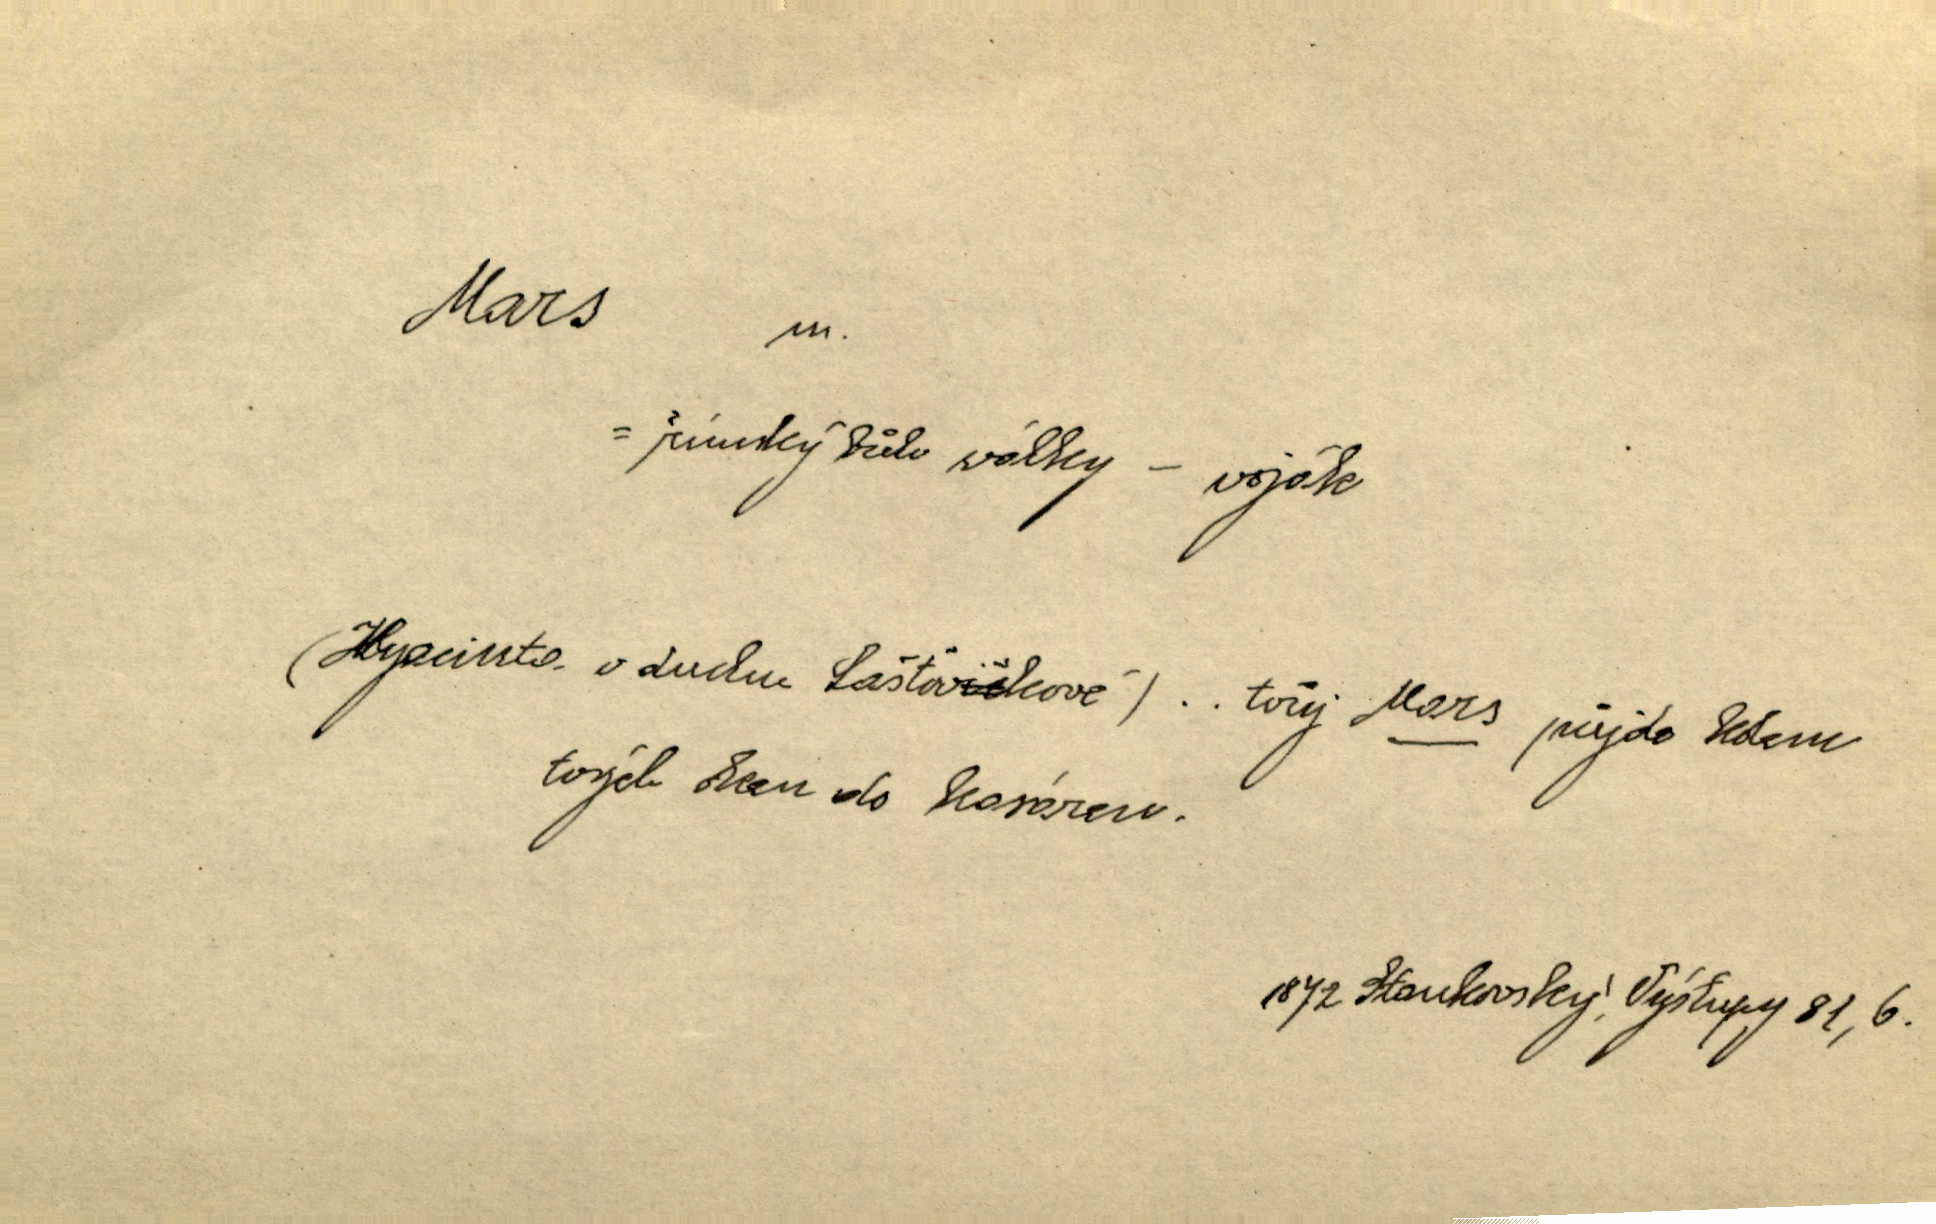 Mars m.
= římský bůh války – voják
(Hyacinta v duchu Laštovičkové) .. tvůj Mars půjde
ven do kasáren.
1872 Stankovský, Výstupy 81, 6.